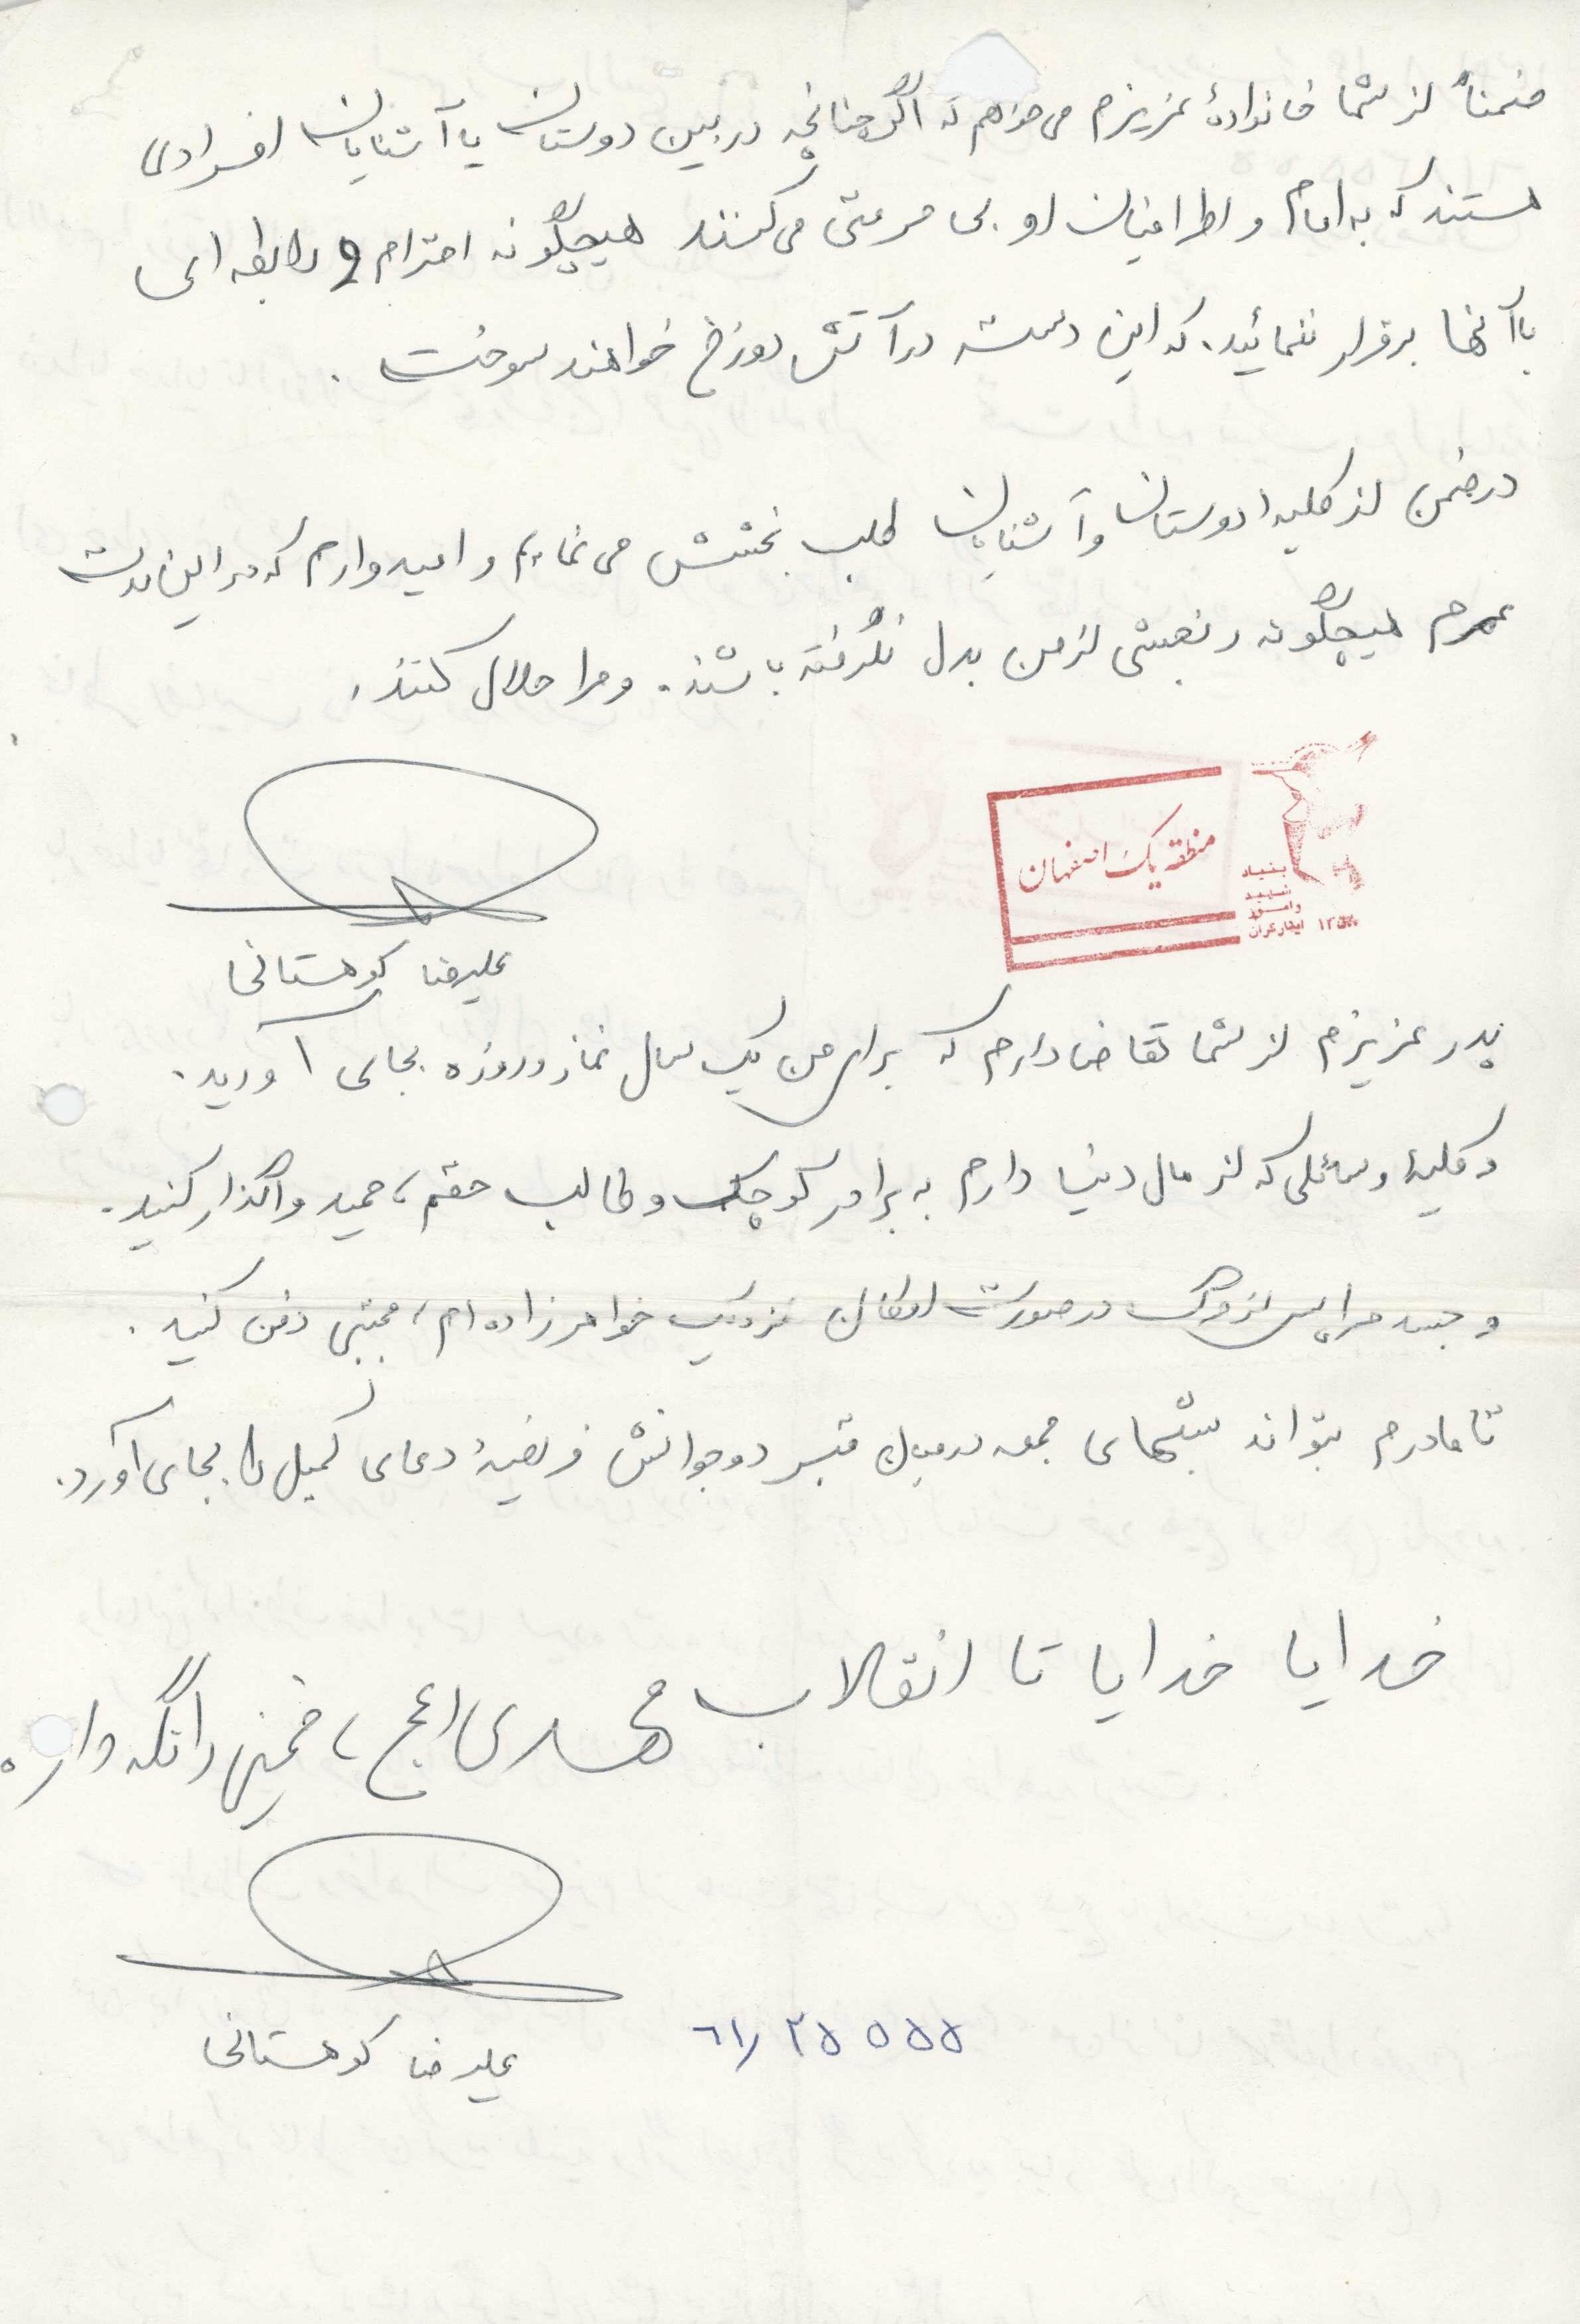 ضمناً از شما خانوادهٔ عزیزم می خواهم که اگر چنانچه در بین دوستان یا آشنایان افرادی
هستند که به امام و اطرافیان او بی حرمتی می کنند هیچگونه احترام و رابطه ای
با آنها برقرار ننمائید. که این دسته در آتش دوزخ خواهند سوخت .
در ضمن از کلیهٔ دوستان و آشنایان طلب بخشش می نمایم و امیدوارم که در این مدت
عمرم هیچگونه رنجشی از من بدل نگرفته باشند. و مرا حلال کنند.
منطقه یک اصفهان
بنیاد
شهید
و امور
ایثارگران
علیرضا کوهستانی
پدر عزیزم از شما تقاضا دارم که برای من یک سال نماز و روزه بجای آورید.
و کلیهٔ وسائلی که از مال دنیا دارم به برادر کوچک و طالب حقم، حمید واگذار کنید.
و جسد مرا پس از مرگ در صورت امکان نزدیک خواهرزاده ام، مجتبی دفن کنید .
تا مادرم بتواند شبهای جمعه در میان قبر دو جوانش فریضهٔ دعای کمیل را بجای آورد.
خدایا خدایا تا انقلاب مهدی (عج)، خمینی را نگه دار.
علیرضا کوهستانی
۶۱/۲۵۰۵۵